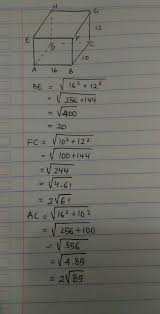 H
G
E
F
12
D
C
10
A
16
B
BE = √16² + 12²
= √256 + 144
= √400
= 20
FC = √10² + 12²
= √100 + 144
= √244
= √4.61
= 2√61
AC = √16² + 10²
= √256 + 100
= √356
= √4.89
= 2√89